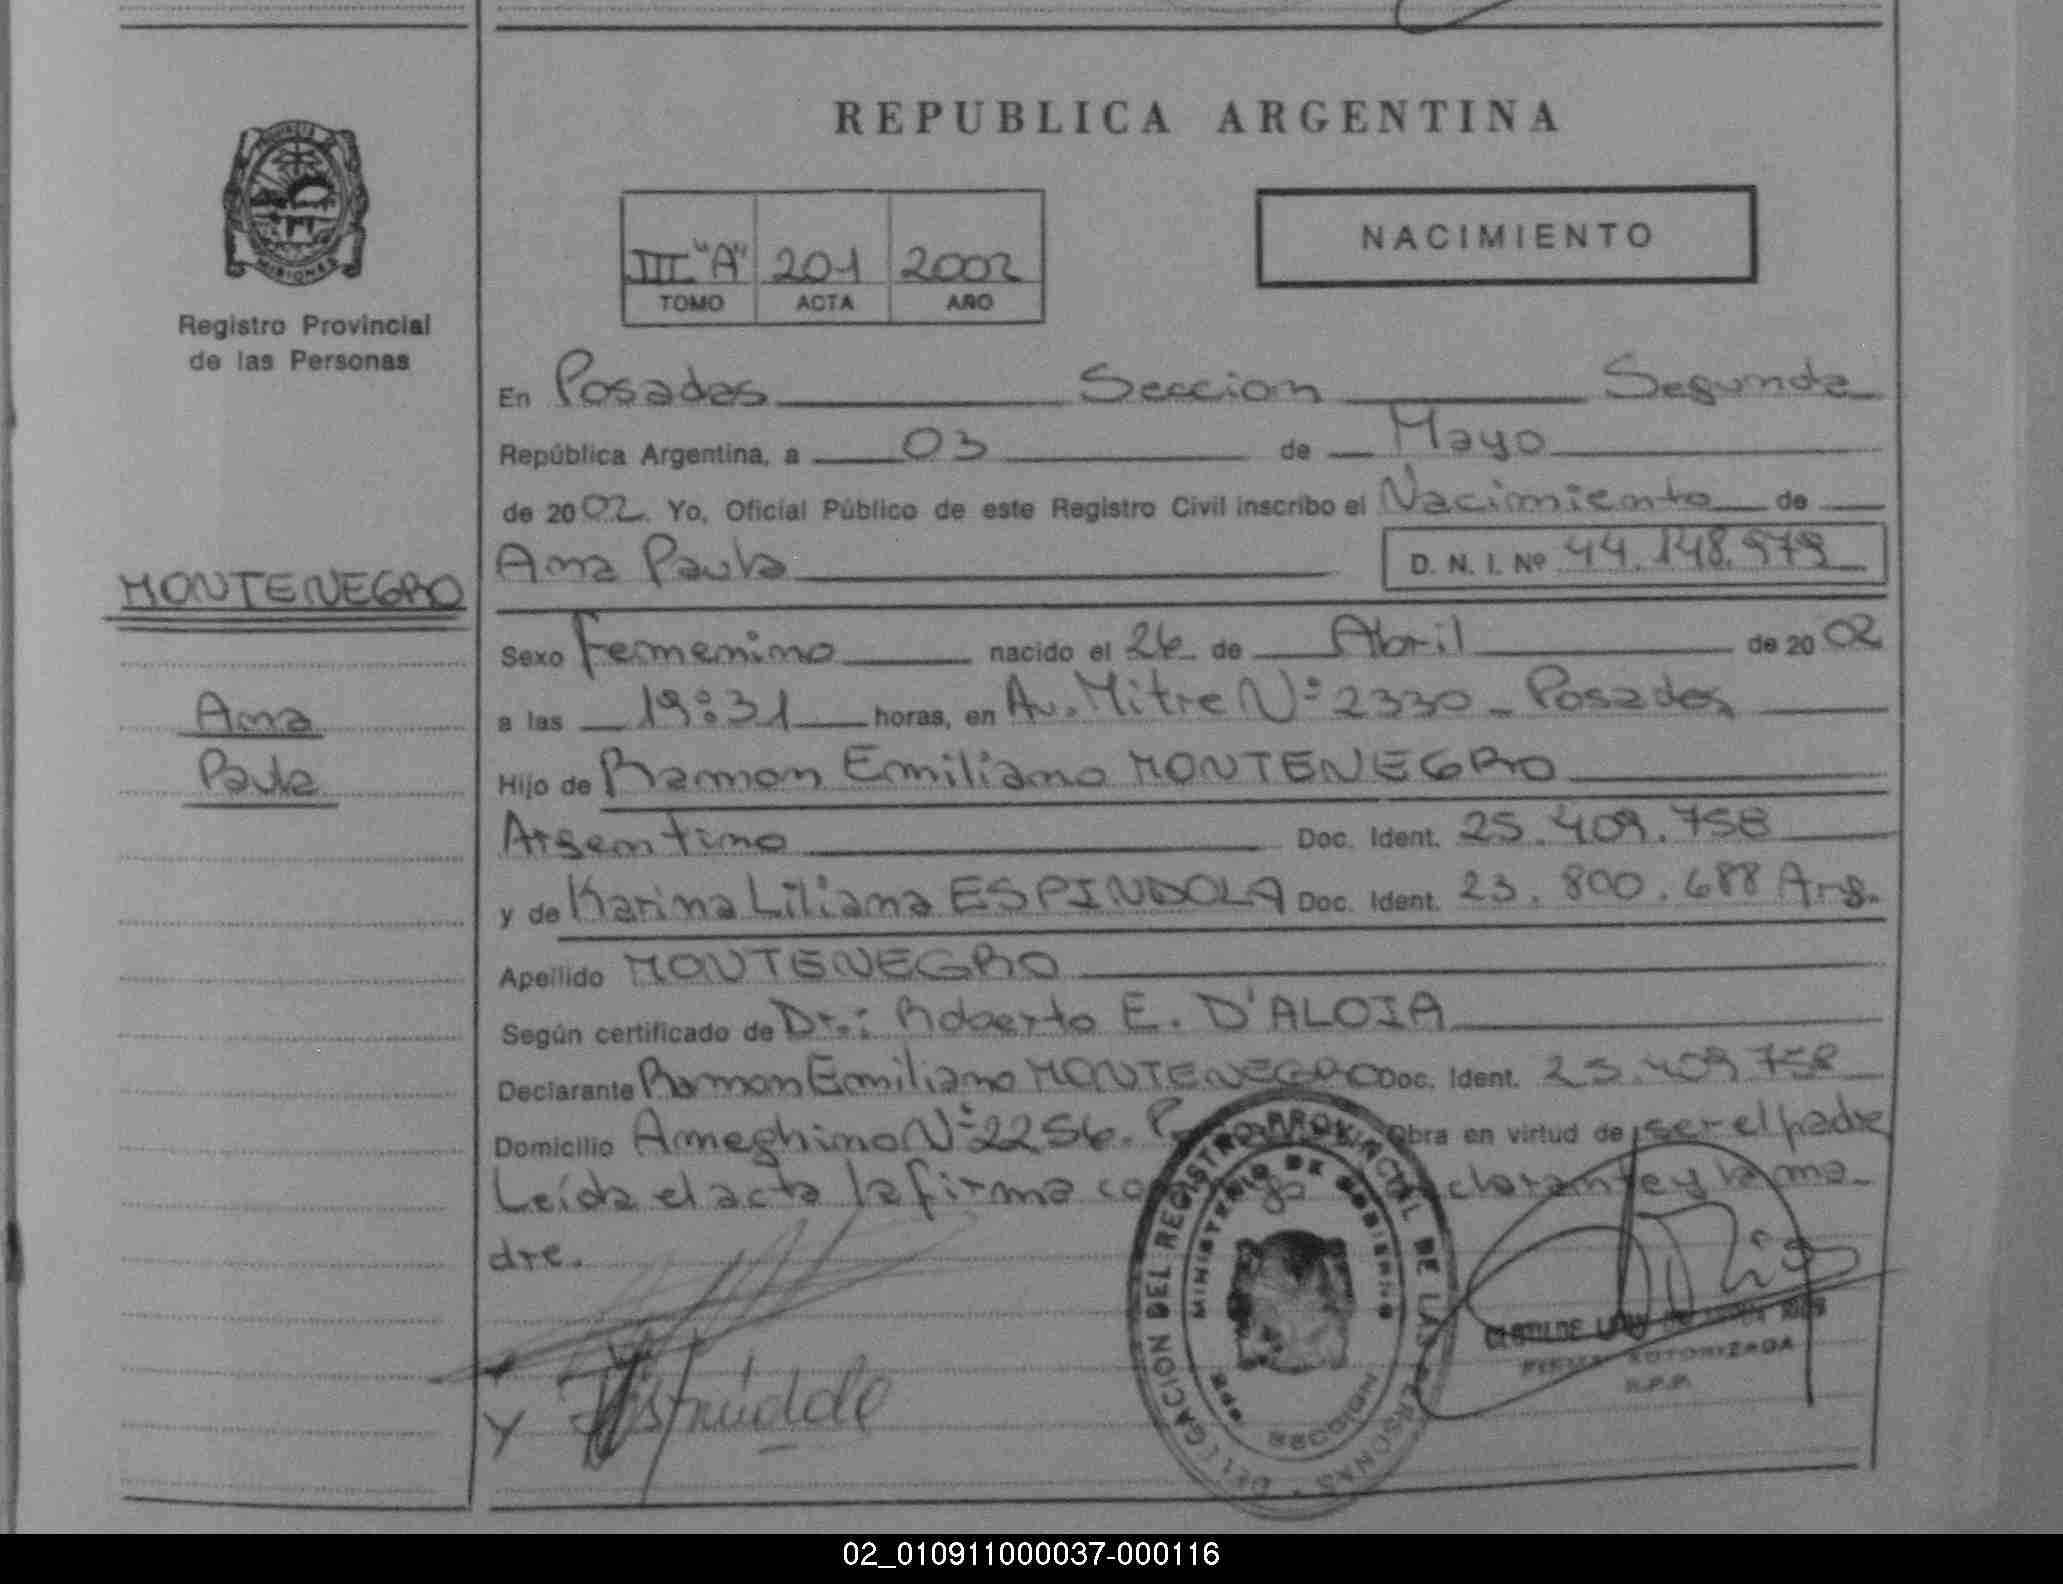 REPUBLICA ARGENTINA
NACIMIENTO
III "A" 201 2002
TOMO ACTA AÑO
MISIONES
Registro Provincial
de las Personas
En Posadas Seccion Segunda
República Argentina, a 03 de Mayo
de 2002. Yo, Oficial Público de este Registro Civil inscribo el Nacimiento de
Ana Paula D. N. I. Nº 44.148.979
MONTENEGRO
Ana
Paula
Sexo Femenino nacido el 26 de Abril de 2002
a las 19:31 horas, en Av. Mitre Nº 2330 - Posadas
Hijo de Ramon Emiliano MONTENEGRO
Argentino Doc. Ident. 25.409.758
y de Karina Liliana ESPINDOLA Doc. Ident. 23.800.688 Arg.
Apellido MONTENEGRO
Según certificado de Dr.: Roberto E. D'ALOIA
Declarante Ramon Emiliano MONTENEGRO Doc. Ident. 25.409.758
Domicilio Ameghino Nº 2256. Obra en virtud de ser el padre
Leída el acta la firma y la ma-
dre.
DELEGACION DEL REGISTRO PROVINCIAL DE LAS PERSONAS
MINISTERIO DE GOBIERNO
MISIONES
CLOTILDE
FIRMA AUTORIZADA
R.P.P.
02_010911000037-000116